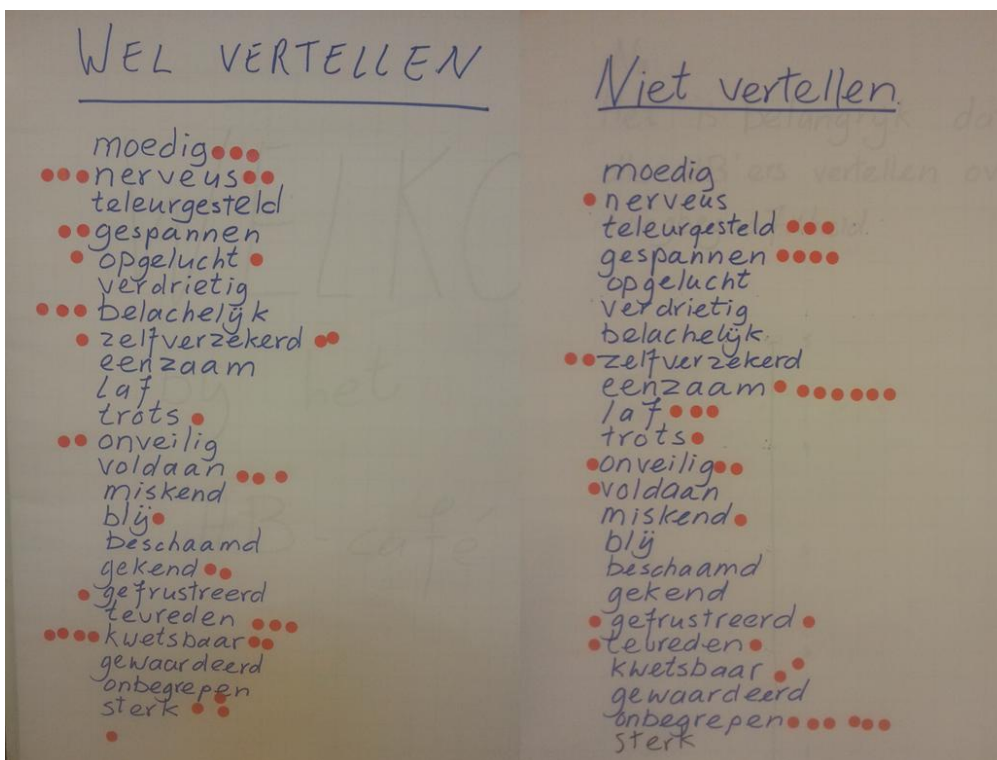 WEL VERTELLEN
moedig
nerveus
teleurgesteld
gespannen
opgelucht
verdrietig
belachelijk
zelfverzekerd
eenzaam
laf
trots
onveilig
voldaan
miskend
blij
beschaamd
gekend
gefrustreerd
tevreden
kwetsbaar
gewaardeerd
onbegrepen
sterk
Niet vertellen
moedig
nerveus
teleurgesteld
gespannen
opgelucht
verdrietig
belachelijk
zelfverzekerd
eenzaam
laf
trots
onveilig
voldaan
miskend
blij
beschaamd
gekend
gefrustreerd
tevreden
kwetsbaar
gewaardeerd
onbegrepen
sterk